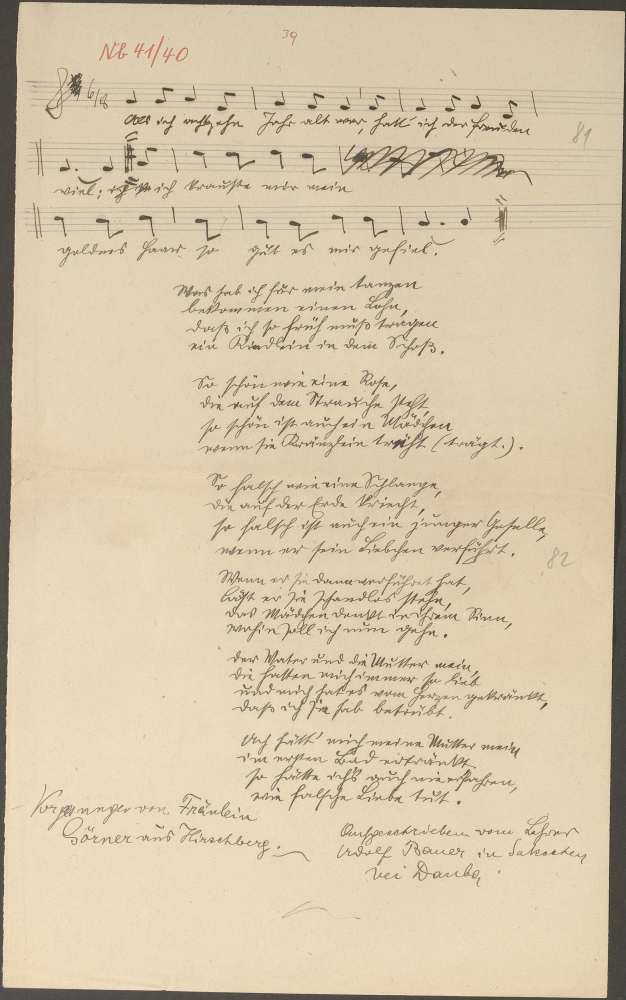 39
NB 41/40
6/8
Als ich achtzehn Jahr alt war, hatt' ich der Freuden
81
viel; ich krauste mir mein
goldnes Haar, so gut es mir gefiel.
Was hab ich für mein tanzen
bekommen einen Lohn,
daß ich so früh muß tragen
ein Kindlein in dem Schoß.
So schön wie eine Rose,
die auf dem Strauche steht,
so schön ist auch ein Mädchen
wenn sie Kränzlein träht (trägt.).
So falsch wie eine Schlange,
die auf der Erde kriecht,
so falsch ist auch ein junger Geselle,
wenn er sein Liebchen verführt.
82
Wenn er sie dann verführet hat,
läßt er sie schandlos stehn,
das Mädchen denkt in ihrem Sinn,
wohin soll ich nun gehn.
Der Vater und die Mutter mein,
die hatten mich immer so lieb
und mich hat es vom Herzen gekränkt,
daß ich sie hab betrübt.
Ach hätt' mich meine Mutter mein
im ersten Bad ertränkt
so hätte ich's auch nie erfahren,
wie falsche Liebe tut.
Vorgesungen von Fräulein
Görner aus Hirschberg.
Aufgeschrieben vom Lehrer
Adolf Bauer in
bei Dauba